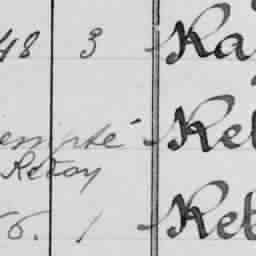 48 3 Ka
empté Kel
Retoy
6. 1 Keb